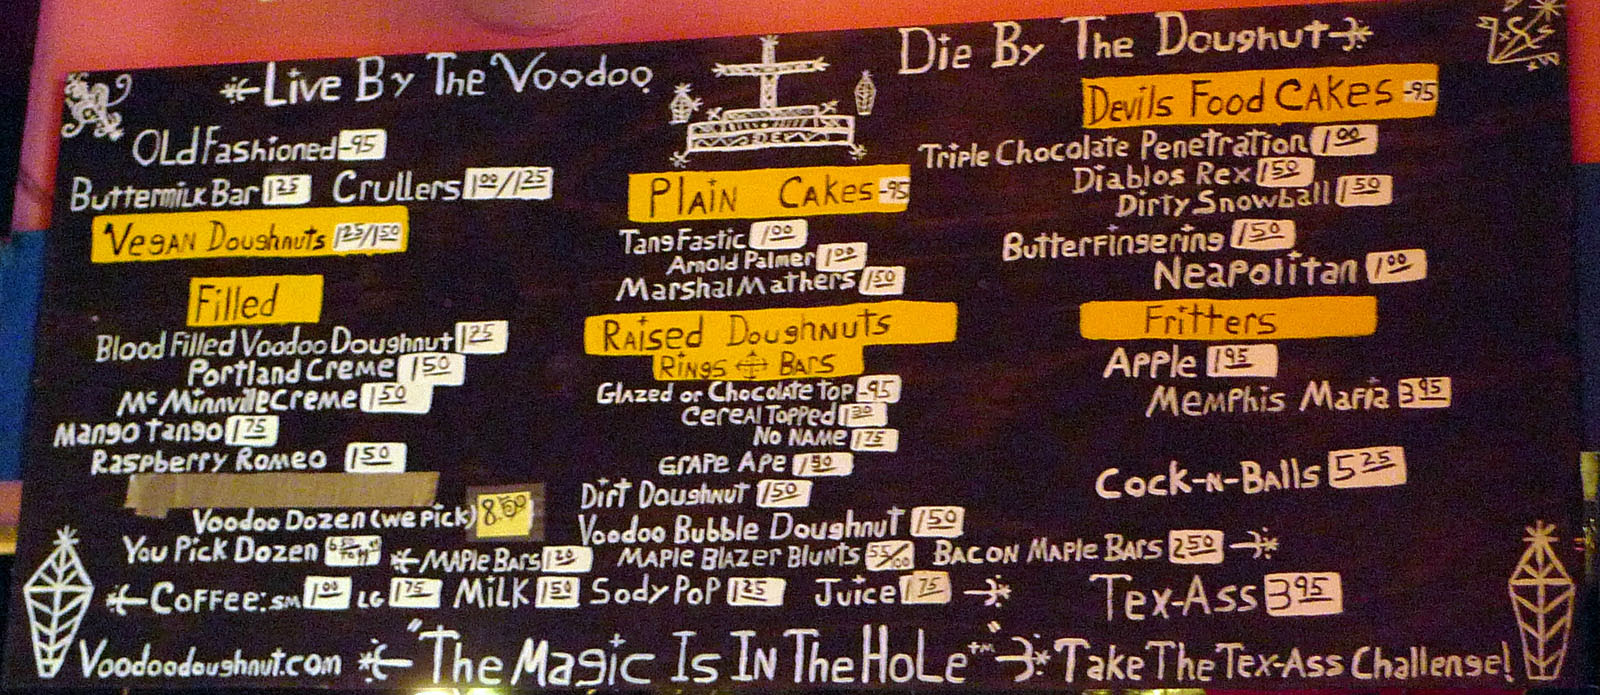 Live By The Voodoo
Die By The Doughnut
Old Fashioned .95
Buttermilk Bar 1.25 Crullers 1.00/1.25
Vegan Doughnuts 1.25/1.50
Filled
Blood Filled Voodoo Doughnut 1.25
Portland Creme 1.50
McMinnville Creme 1.50
Mango Tango 1.75
Raspberry Romeo 1.50
Voodoo Dozen (we pick) 8.50
You Pick Dozen
Plain Cakes .95
Tang Fastic 1.00
Arnold Palmer 1.00
Marshal Mathers 1.50
Raised Doughnuts
Rings Bars
Glazed or Chocolate Top .95
Cereal Topped
No Name 1.75
Grape Ape 1.50
Dirt Doughnut 1.50
Voodoo Bubble Doughnut 1.50
Devils Food Cakes .95
Triple Chocolate Penetration 1.00
Diablos Rex 1.50
Dirty Snowball 1.50
Butterfingering 1.50
Neapolitan 1.00
Fritters
Apple 1.95
Memphis Mafia 3.95
Cock-n-Balls 5.25
Maple Bars Maple Blazer Blunts Bacon Maple Bars 2.50
Coffee: sm 1.00 LG 1.75 Milk 1.50 Sody Pop 1.25 Juice 1.75
Tex-Ass 3.95
Voodoodoughnut.com "The Magic Is In The Hole"™ Take The Tex-Ass Challenge!